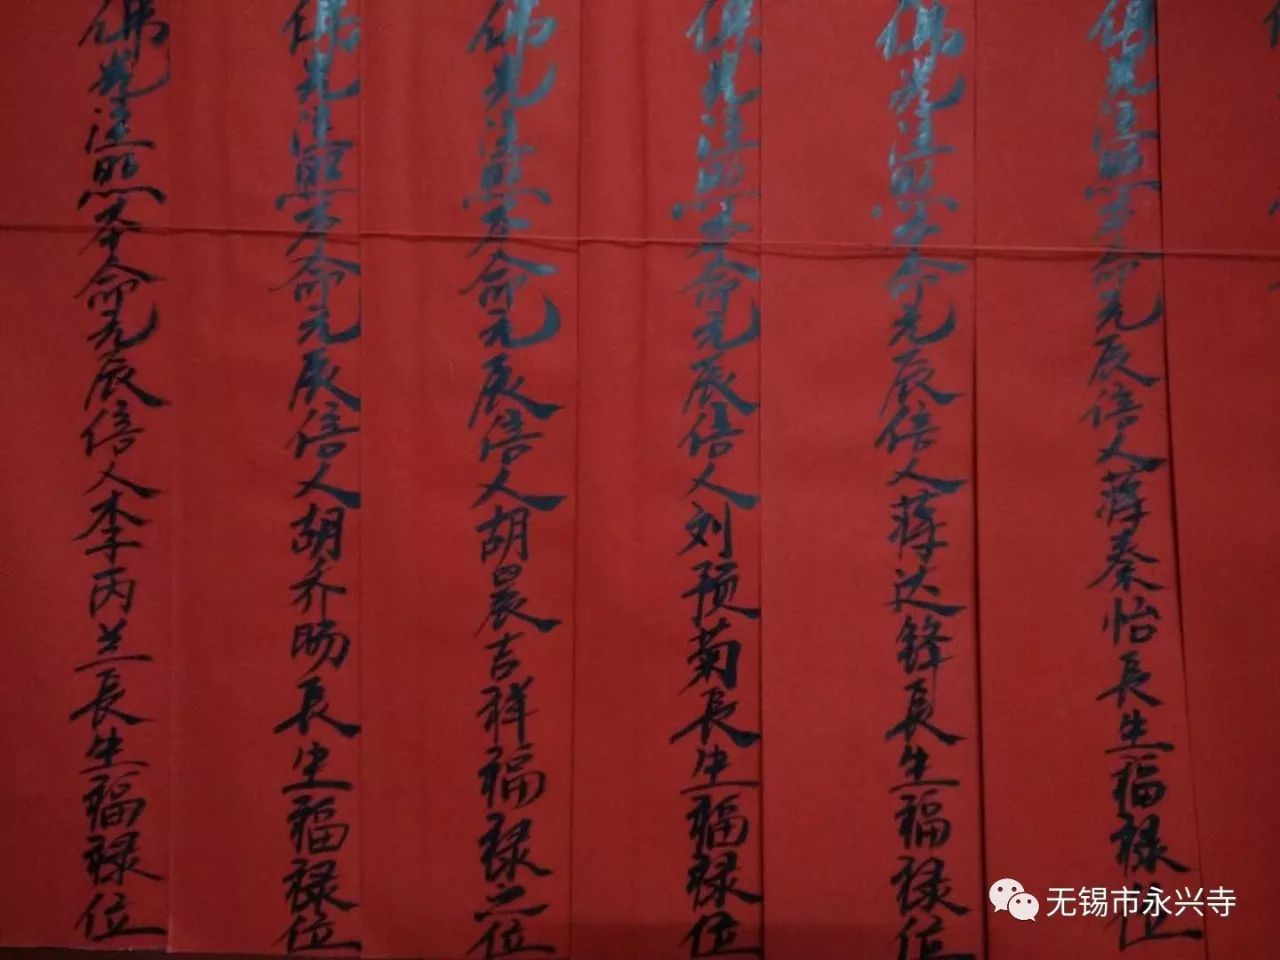 佛光注照本命元辰信人李丙兰長生福禄位
佛光注照本命元辰信人胡乔旸長生福禄位
佛光注照本命元辰信人胡晨吉祥福禄之位
佛光注照本命元辰信人刘预菊長生福禄位
佛光注照本命元辰信人蒋达锋長生福禄位
佛光注照本命元辰信人蒋秦怡長生福禄位
无锡市永兴寺